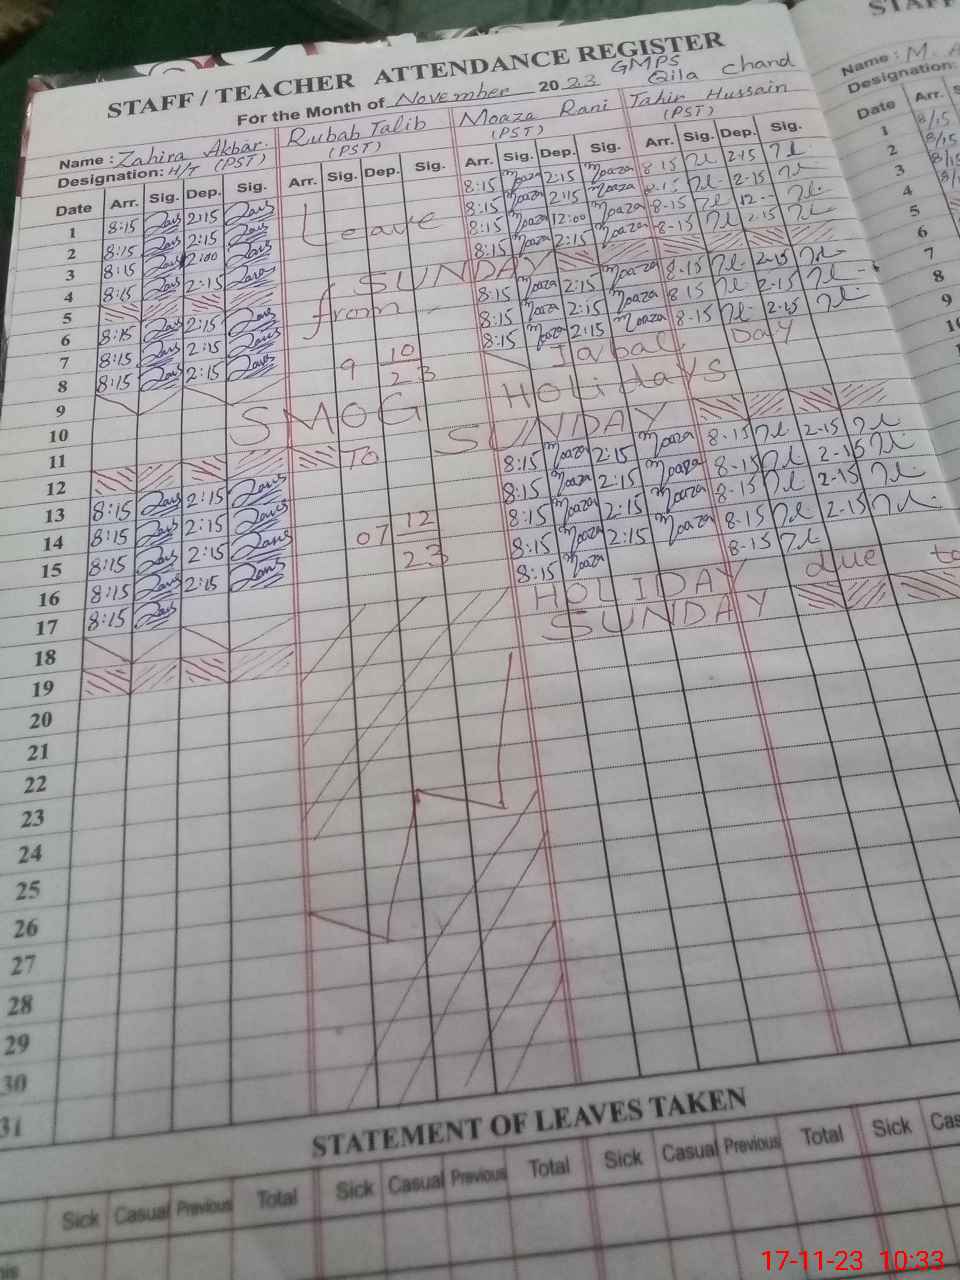 STAFF / TEACHER ATTENDANCE REGISTER
For the Month of November 2023 GMPS Qila Chand
Name : Zahira Akbar. Rubab Talib Moaza Rani Tahir Hussain
Designation: H/T (PST) (PST) (PST) (PST)
Date Arr. Sig. Dep. Sig. Arr. Sig. Dep. Sig. Arr. Sig. Dep. Sig. Arr. Sig. Dep. Sig.
1 8:15 2:15 8:15 Moaza 2:15 Moaza 8-15 2-15
2 8:15 2:15 Leave 8:15 Moaza 2:15 Moaza 8-15 2-15
3 8:15 2:00 8:15 Moaza 12:00 Moaza 8-15 12--
4 8:15 2:15 8:15 Moaza 2:15 Moaza 8-15 2-15
5 SUNDAY
6 8:15 2:15 from 8:15 Moaza 2:15 Moaza 8-15 2-15
7 8:15 2:15 8:15 Moaza 2:15 Moaza 8-15 2-15
8 8:15 2:15 9 10/23 8:15 Moaza 2:15 Moaza 8-15 2-15
9 Iqbal Day
10 SMOG Holidays
11
12 To SUNDAY
13 8:15 2:15 8:15 Moaza 2:15 Moaza 8-15 2-15
14 8:15 2:15 07 12/23 8:15 Moaza 2:15 Moaza 8-15 2-15
15 8:15 2:15 8:15 Moaza 2:15 Moaza 8-15 2-15
16 8:15 2:15 8:15 Moaza 2:15 Moaza 8-15 2-15
17 8:15 8:15 Moaza 8-15
18 HOLIDAY due to
19 SUNDAY
20
21
22
23
24
25
26
27
28
29
30
31
STATEMENT OF LEAVES TAKEN
Sick Casual Previous Total Sick Casual Previous Total Sick Casual Previous Total Sick
Name : M.
Designation:
Date Arr.
1 8/15
2 8/15
3 8/15
4
5
6
7
8
9
17-11-23 10:33